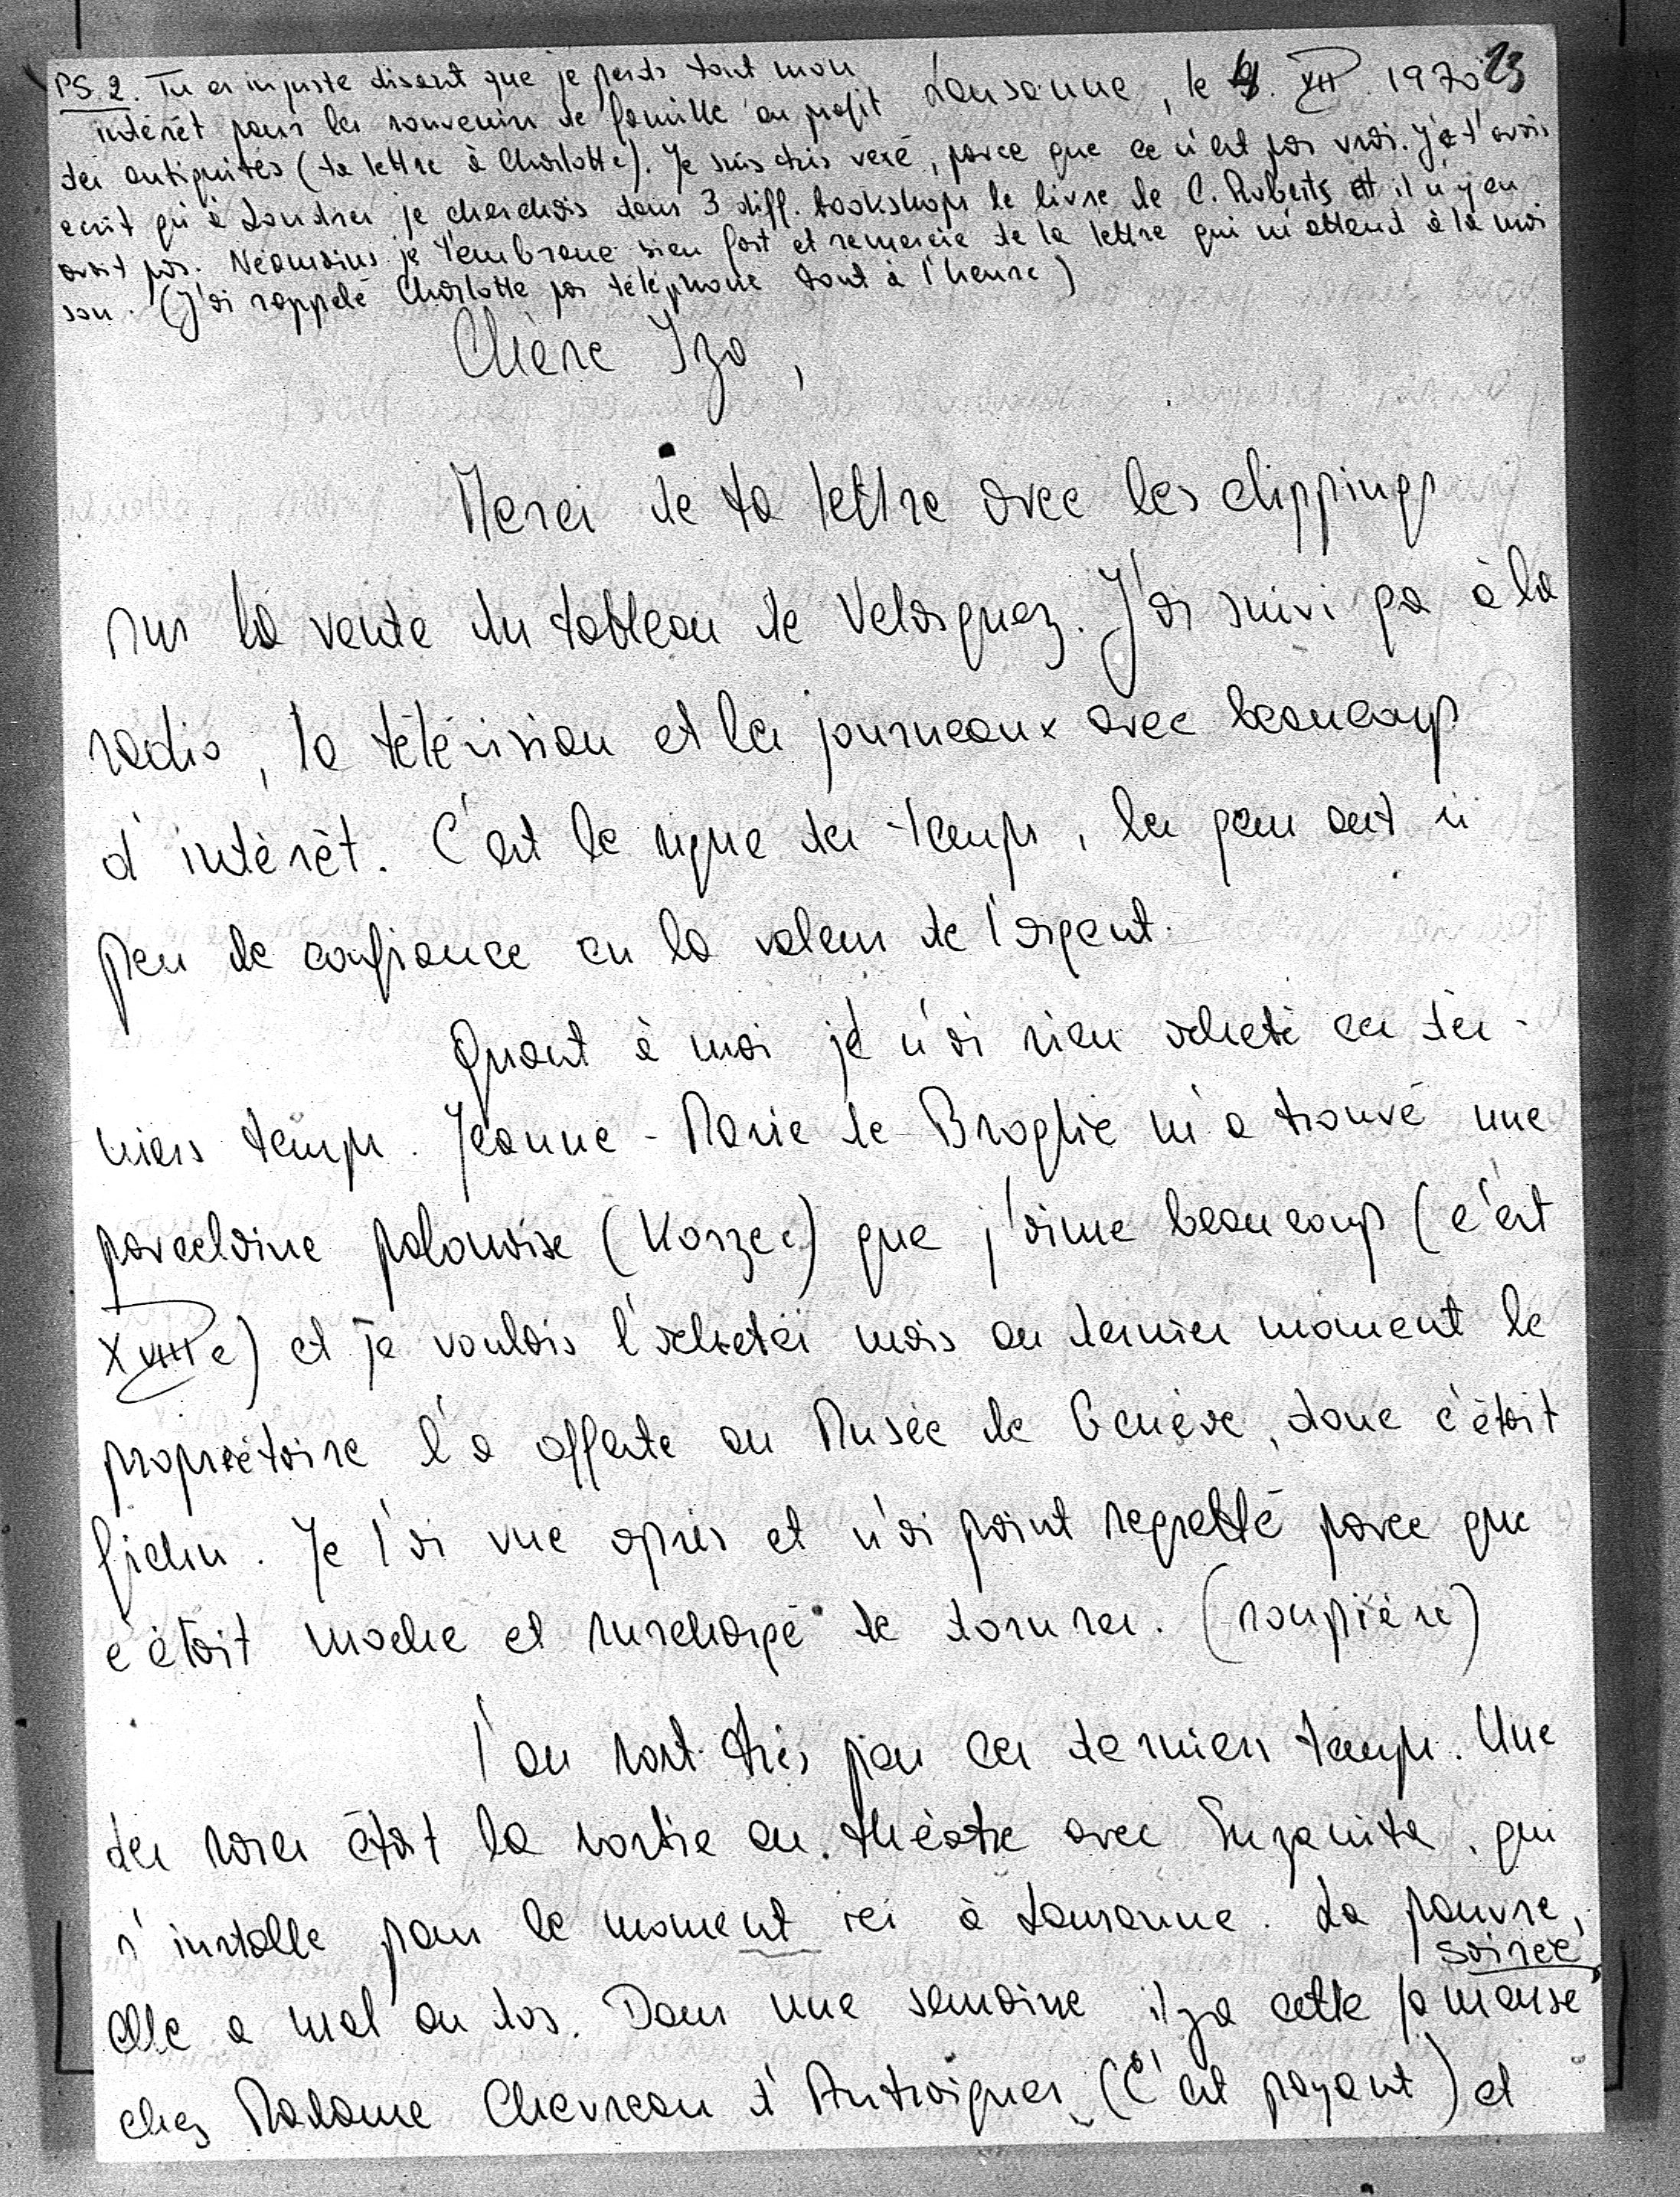 PS. 2. Tu es injuste disant que je perds tout mon
intérêt pour les souvenirs de famille au profit
Lausanne, le 9. XII. 1970
23
des antiquités (ta lettre à Charlotte). Je suis très vexé, parce que ce n'est pas vrai. Je t'avais
ecrit qu'à Londres je cherchais dans 3 diff. bookshops le livre de C. Roberts et il n'y en
avait pas. Néamoins je t'embrasse bien fort et remercie de la lettre qui m'attend à la mai
son. (J'ai rappelé Charlotte par téléphone tout à l'heure)
Chère Iza,
Merci de ta lettre avec les clippings
sur la vente du tableau de Velasquez. J'ai suivi ça à la
radio, la télévision et les journeaux avec beaucoup
d'intérêt. C'est le signe des temps, les gens ont si
peu de confiance en la valeur de l'argent.
Quant à moi je n'ai rien acheté ces der-
niers temps. Jeanne-Marie de Broglie m'a trouvé une
porcelaine polonaise (Korzec) que j'aime beaucoup (c'est
XVIIIe) et je voulais l'acheter mais au dernier moment le
propriétaire l'a offerte au Musée de Genève, donc c'était
fichu. Je l'ai vue après et n'ai point regretté parce que
c'était moche et surchargé de dorures. (soupière)
l'on sort très peu ces derniers temps. Une
des rares était la sortie au théatre avec Suzanita, qui
s'installe pour le moment ici à Lausanne. La pauvre,
elle a mal au dos. Dans une semaine il y a cette fameuse soirée,
chez Madame Chevreau d'Antraigues (C'est payant) et